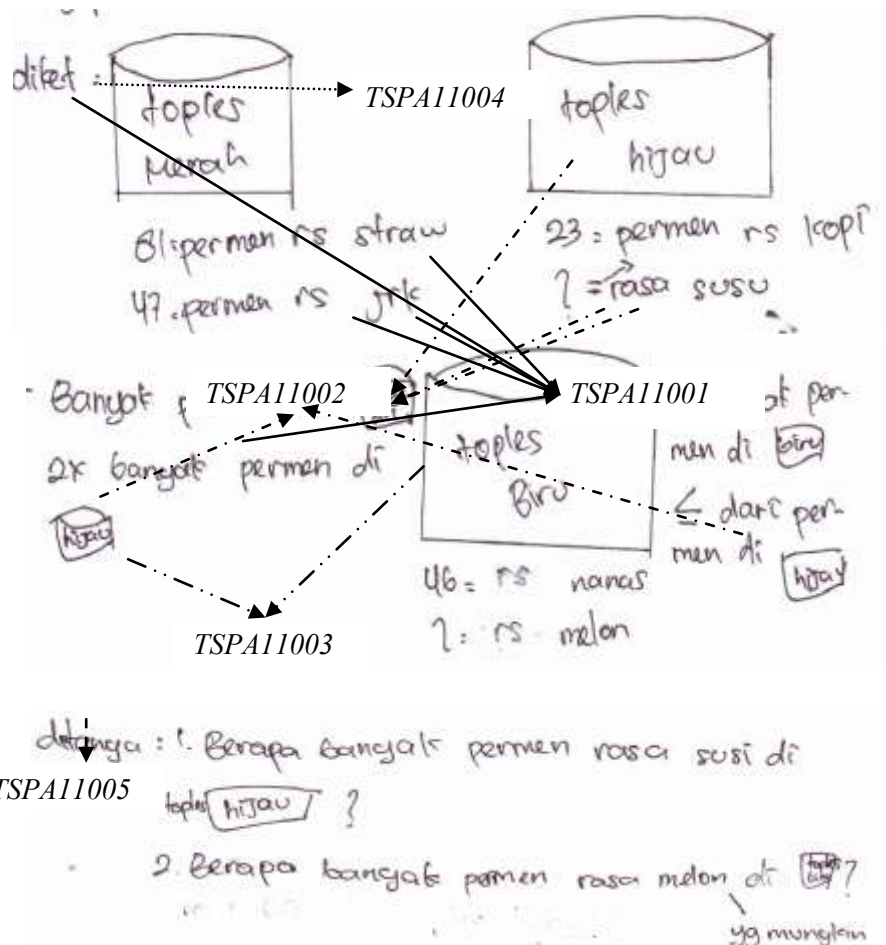 diket :
TSPA11004
toples
merah
toples
hijau
81 : permen rs straw
47 . permen rs jrk
23 = permen rs kopi
? = rasa susu
Banyak
TSPA11002
TSPA11001
2x banyak permen di
hijau
toples
Biru
per-
men di biru
≤ dari per-
men di hijau
46 = rs nanas
? : rs melon
TSPA11003
ditanya : 1. Berapa banyak permen rasa susi di
toples hijau ?
TSPA11005
2. Berapa banyak permen rasa melon di toples biru ?
yg mungkin